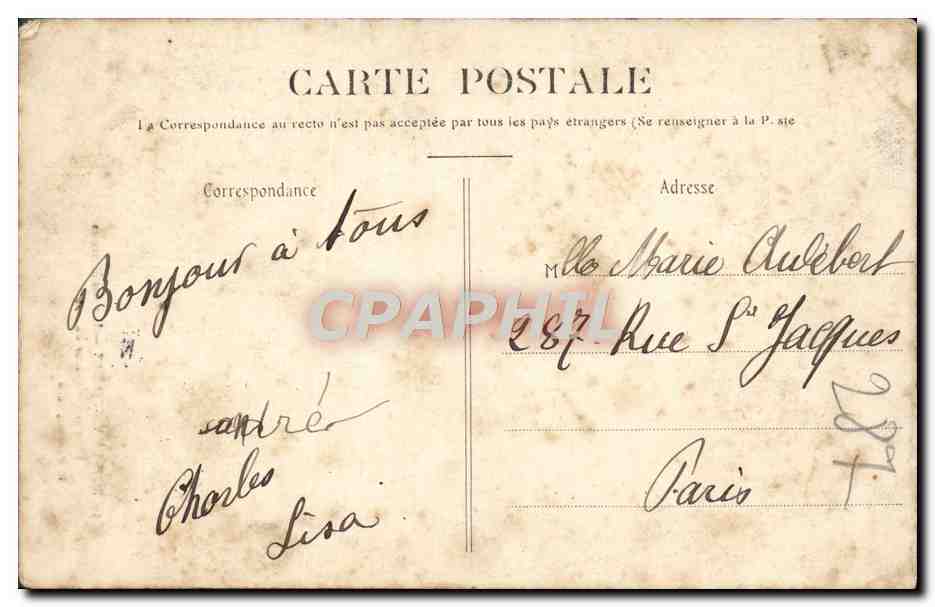 CARTE POSTALE
La Correspondance au recto n'est pas acceptée par tous les pays étrangers (Se renseigner à la Poste
Correspondance
Adresse
Bonjour à tous
andré
Charles
Lisa
Mlle Marie Audébert
287 Rue St Jacques
Paris
287
CPAPHIL